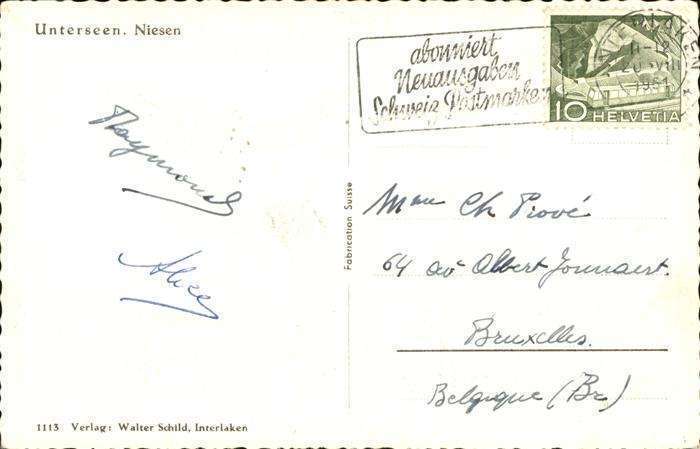 Unterseen. Niesen
abonniert
Neuausgaben
Schweiz Postmarken
INTERLAKEN
11-12
20. VIII
195
1
10 HELVETIA
Raymond
Alice
Fabrication Suisse
Mme Ch Provë
64 av Albert Jonnaert.
Bruxelles.
Belgique (Br)
1113 Verlag: Walter Schild, Interlaken